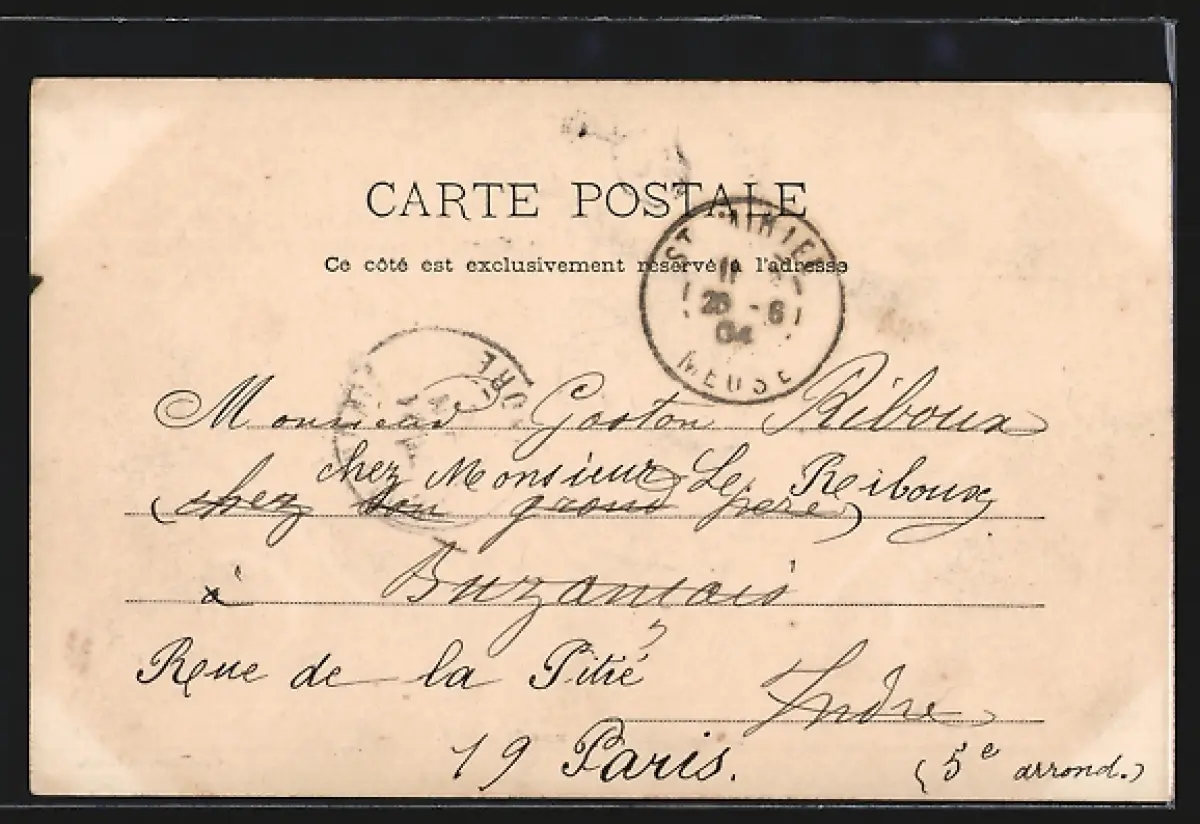 CARTE POSTALE
Ce côté est exclusivement réservé à l'adresse
ST MIHIEL
11
28 -6
04
MEUSE
DRE
Monsieur Gaston Riboux
chez Monsieur Le Reiboux
(chez son grand père)
à Buzançais
Rue de la Pitié
Indre
19 Paris.
(5e arrond.)